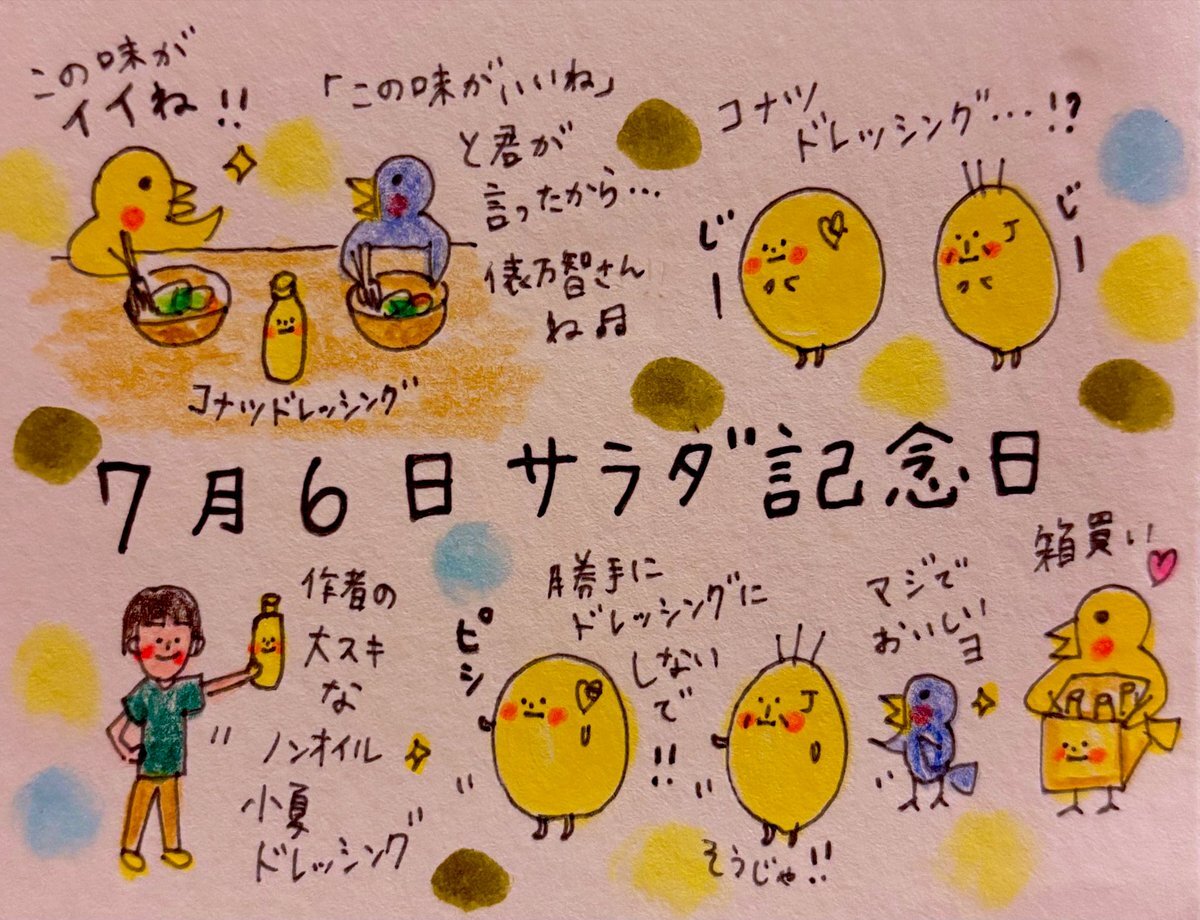 この味が
イイね!!
「この味がいいね」
と君が
言ったから…
俵万智さん
ね♬
コナツ
ドレッシング…!?
じー
じー
コナツドレッシング
7月6日 サラダ記念日
作者の
大スキ
な
ノンオイル
小夏
ドレッシング
ピシ
勝手に
ドレッシングに
しない
で!!
そうじゃ!!
マジで
おいしい
ヨ
箱買い